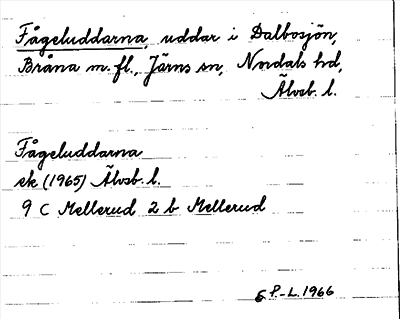 Fågeluddarna, uddar i Dalbosjön,
Bråna m. fl., Järns sn, Nordals hd,
Älvsb. l.
Fågeluddarna
ek (1965) Älvsb. l.
9 C Mellerud 2 b Mellerud
G P.-L. 1966